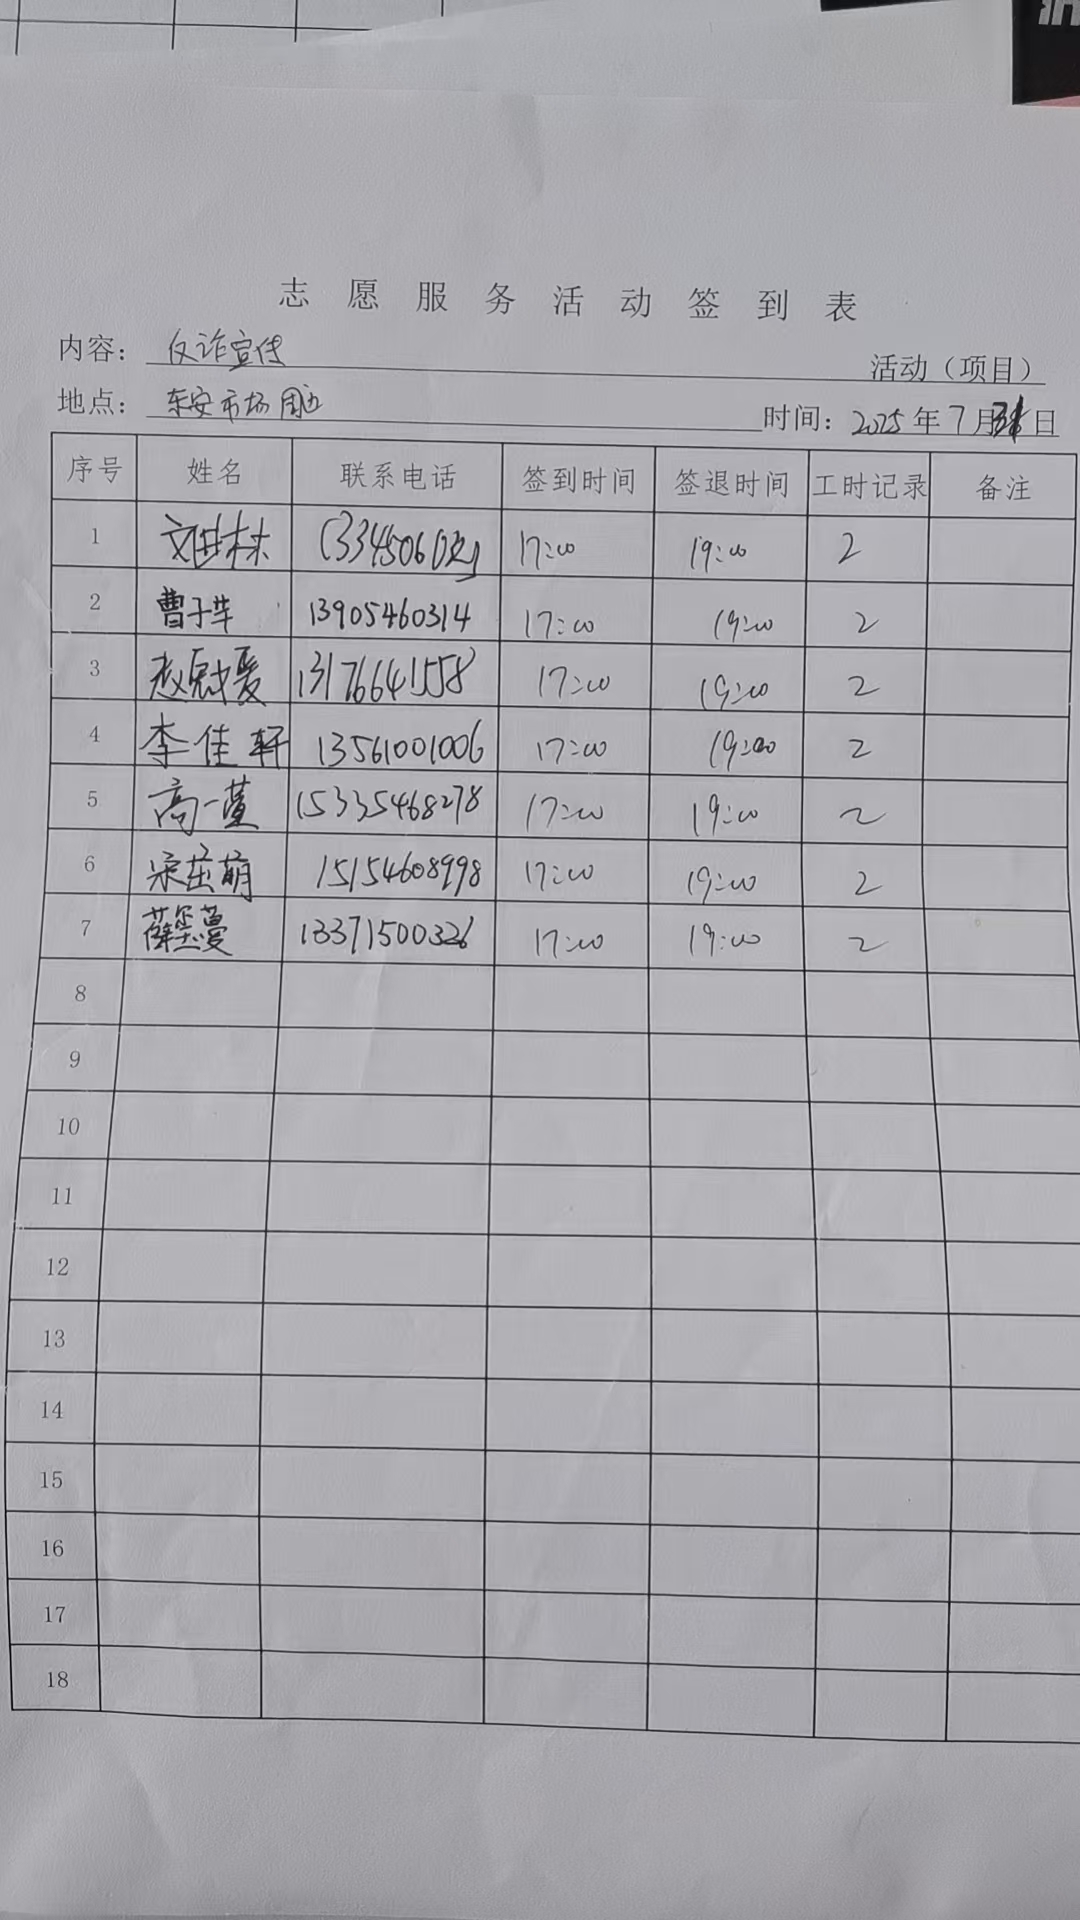 志愿服务活动签到表
内容：反诈宣传 活动（项目）
地点：东安市场周边 时间：2025年7月31日
序号 姓名 联系电话 签到时间 签退时间 工时记录 备注
1 17:00 19:00 2
2 曹子芊 13905460314 17:00 19:00 2
3 13176641558 17:00 19:00 2
4 李佳轩 13561001006 17:00 19:00 2
5 高一萱 15335468278 17:00 19:00 2
6 梁茁萌 15154608998 17:00 19:00 2
7 薛玺蔓 13371500326 17:00 19:00 2
8
9
10
11
12
13
14
15
16
17
18